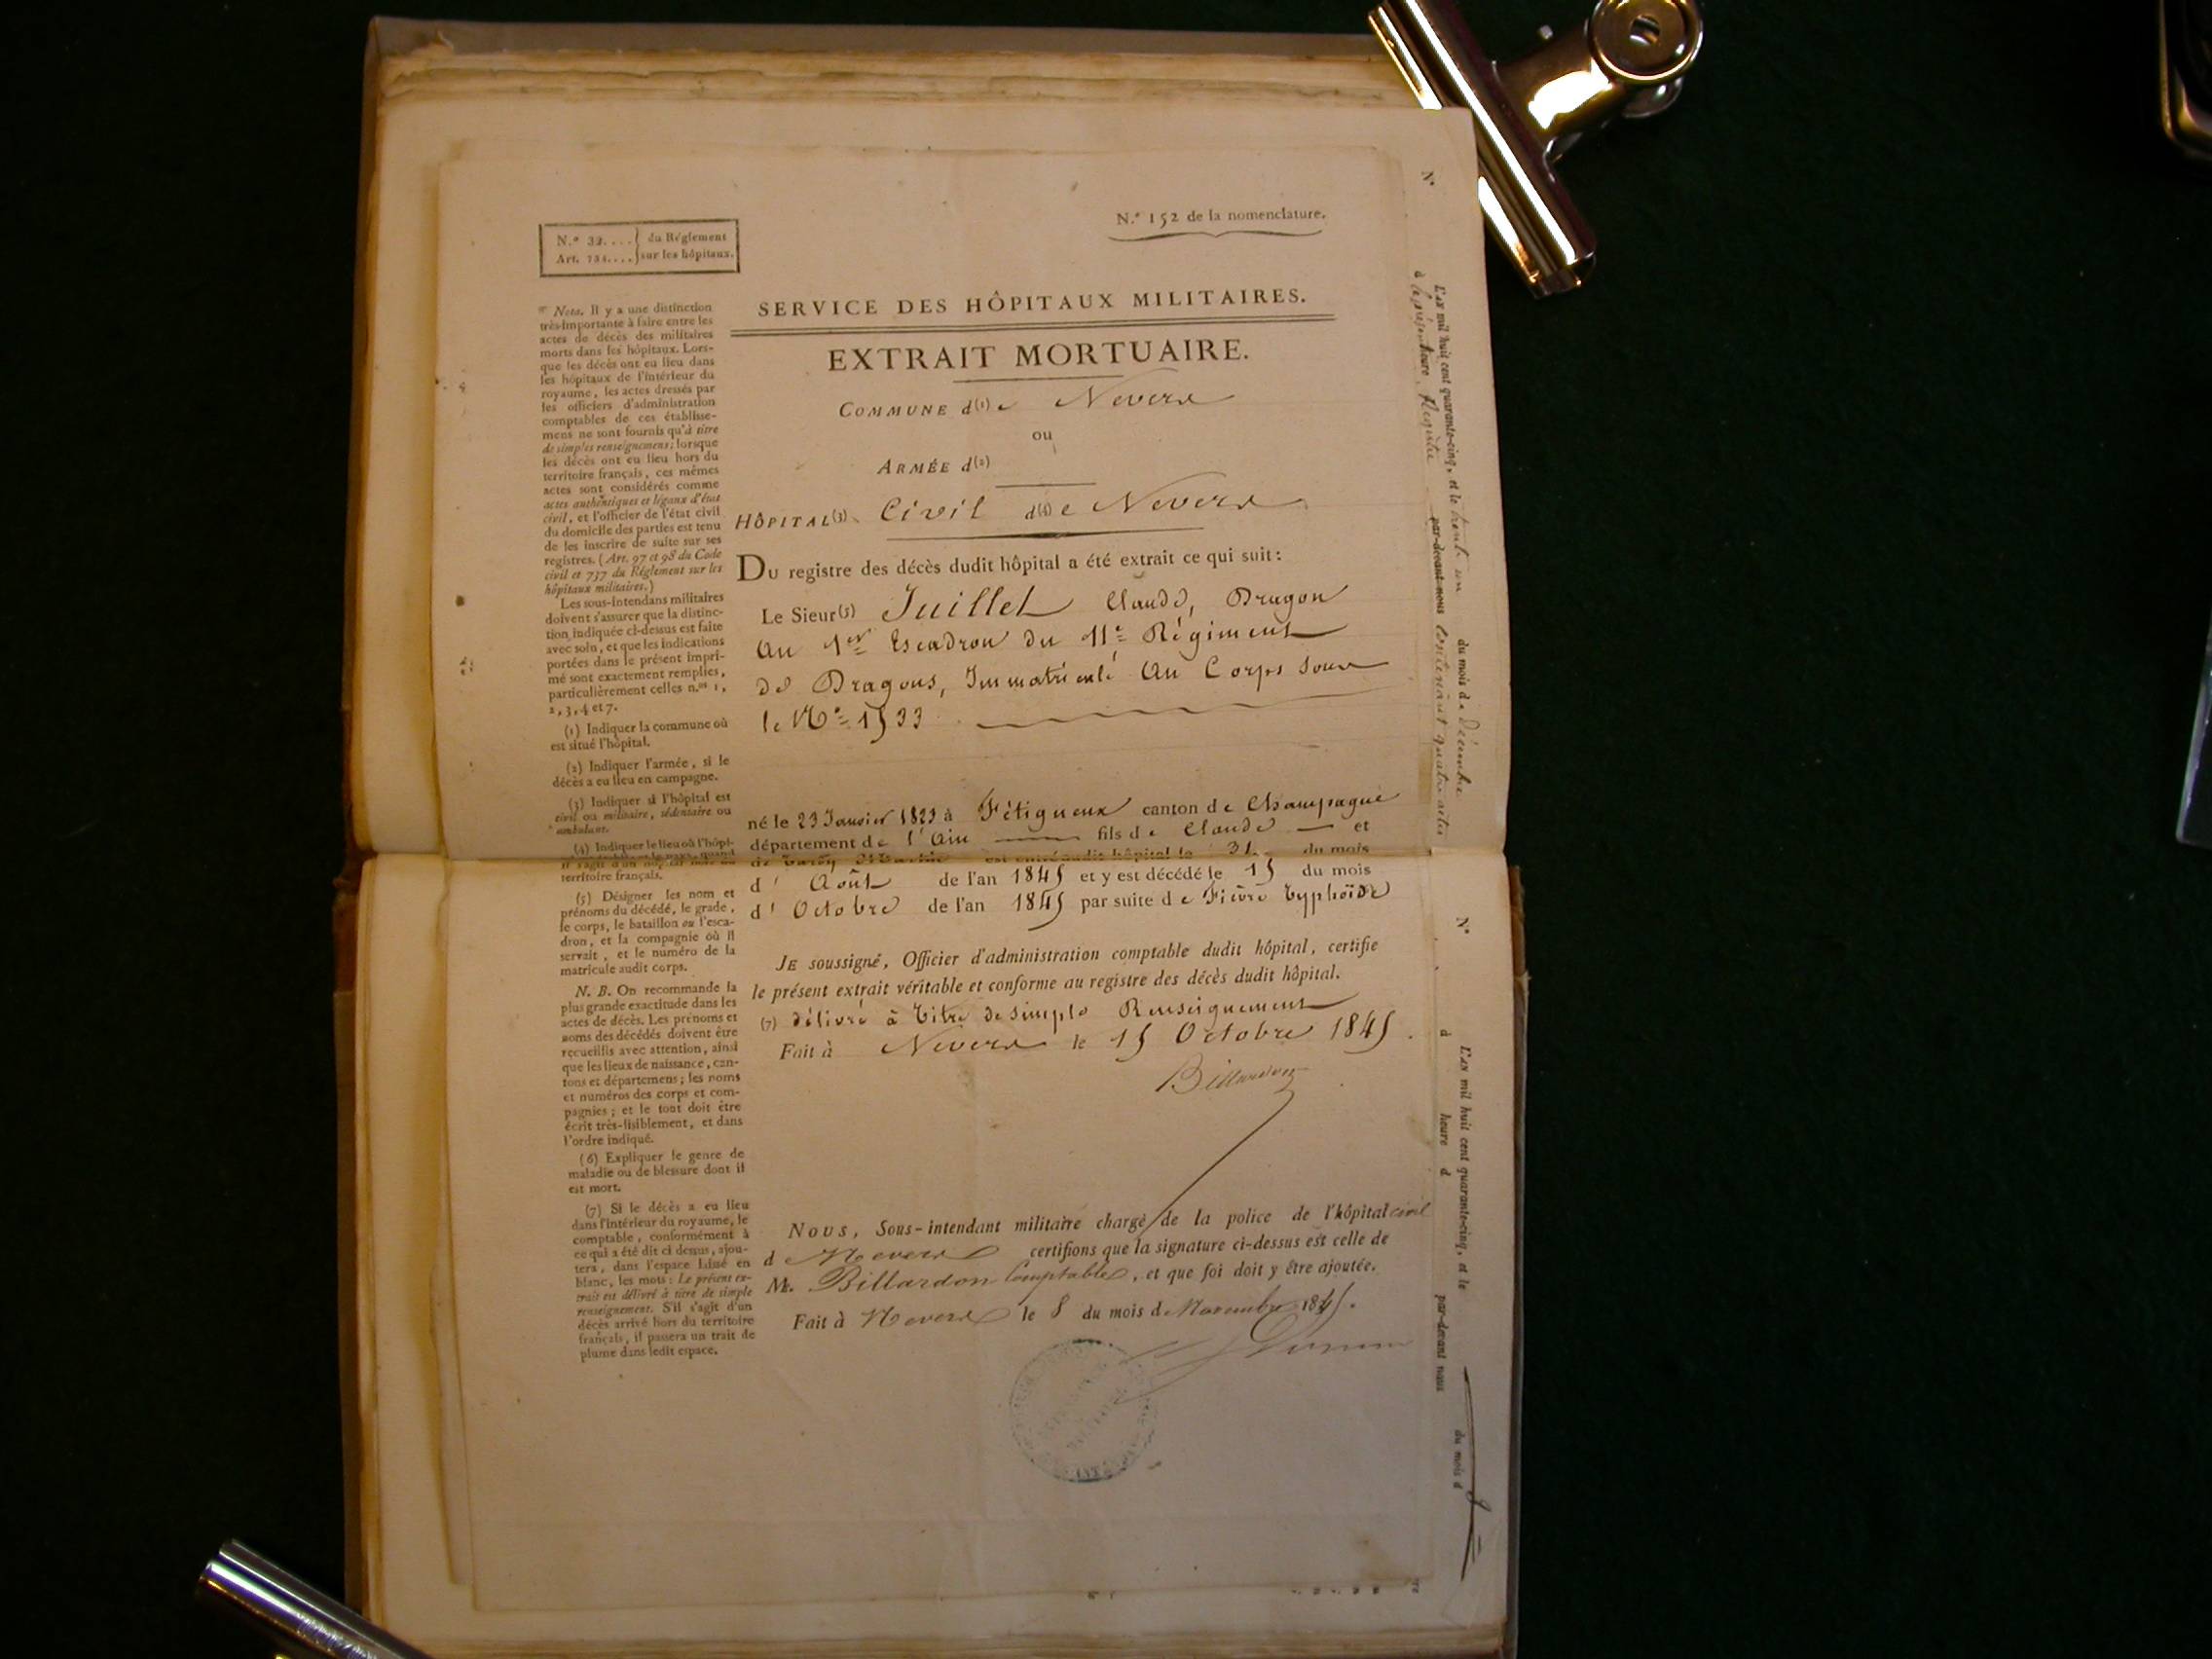 N.º 152 de la nomenclature.
N.º 32.... du Réglement
Art. 734.... sur les hôpitaux.
SERVICE DES HÔPITAUX MILITAIRES.
EXTRAIT MORTUAIRE.
COMMUNE d(1) e Nevers
ou
ARMÉE d(2)
HÔPITAL(3) Civil d(4) e Nevers
DU registre des décès dudit hôpital a été extrait ce qui suit :
Le Sieur(5) Juillet Claude, Dragon
Au 1er Escadron du 11e Régiment
de Dragons, Immatriculé Au Corps sous
le No 1533
né le 23 Janvier 1823 à Fétigneux canton de Champagne
département de l'Ain fils de Claude et
est entré audit hôpital le 31 du mois
d' Août de l'an 1845 et y est décédé le 15 du mois
d' Octobre de l'an 1845 par suite de Fièvre typhoïde
JE soussigné, Officier d'administration comptable dudit hôpital, certifie
le présent extrait véritable et conforme au registre des décès dudit hôpital.
(7) délivré à titre de simple Renseignement
Fait à Nevers le 15 Octobre 1845.
Billardon
NOUS, Sous-intendant militaire chargé de la police de l'hôpital civil
de Nevers certifions que la signature ci-dessus est celle de
M. Billardon Comptable, et que foi doit y être ajoutée.
Fait à Nevers le 8 du mois de Novembre 1845.
Nota. Il y a une distinction
très-importante à faire entre les
actes de décès des militaires
morts dans les hôpitaux. Lors-
que les décès ont eu lieu dans
les hôpitaux de l'intérieur du
royaume, les actes dressés par
les officiers d'administration
comptables de ces établisse-
mens ne sont fournis qu'à titre
de simples renseignemens; lorsque
les décès ont eu lieu hors du
territoire français, ces mêmes
actes sont considérés comme
actes authentiques et légaux d'état
civil, et l'officier de l'état civil
du domicile des parties est tenu
de les inscrire de suite sur ses
registres. (Art. 97 et 98 du Code
civil et 737 du Réglement sur les
hôpitaux militaires.)
Les sous-intendans militaires
doivent s'assurer que la distinc-
tion indiquée ci-dessus est faite
avec soin, et que les indications
portées dans le présent impri-
mé sont exactement remplies,
particulièrement celles n.os 1,
2, 3, 4 et 7.
(1) Indiquer la commune où
est situé l'hôpital.
(2) Indiquer l'armée, si le
décès a eu lieu en campagne.
(3) Indiquer si l'hôpital est
civil ou militaire, sédentaire ou
ambulant.
(4) Indiquer le lieu où l'hôpi-
territoire français.
(5) Désigner les nom et
prénoms du décédé, le grade,
le corps, le bataillon ou l'esca-
dron, et la compagnie où il
servait, et le numéro de la
matricule audit corps.
N. B. On recommande la
plus grande exactitude dans les
actes de décès. Les prénoms et
noms des décédés doivent être
recueillis avec attention, ainsi
que les lieux de naissance, can-
tons et départemens; les noms
et numéros des corps et com-
pagnies; et le tout doit être
écrit très-lisiblement, et dans
l'ordre indiqué.
(6) Expliquer le genre de
maladie ou de blessure dont il
est mort.
(7) Si le décès a eu lieu
dans l'intérieur du royaume, le
comptable, conformément à
ce qui a été dit ci dessus, ajou-
tera, dans l'espace laissé en
blanc, les mots : Le présent ex-
trait est délivré à titre de simple
renseignement. S'il s'agit d'un
décès arrivé hors du territoire
français, il passera un trait de
plume dans ledit espace.
N.º
L'AN mil huit cent quarante-cinq, et le trente un du mois de décembre
par-devant nous contenant quatre actes
N.º
L'AN mil huit cent quarante-cinq, et le du mois d
à heure d par-devant nous